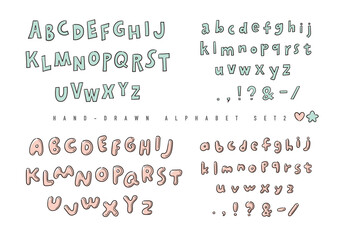 ABCDEFGHIJ
KLMNOPQRST
UVWXYZ
abcdefghi
jklmnopqr
stuvwxyz
.,!?&-/
HAND-DRAWN ALPHABET SET2
ABCDEFGHIJ
KLMNOPQRS
TUVWXYZ
abcdefghi
jklmnopqr
stuvwxyz
.,!?&-/